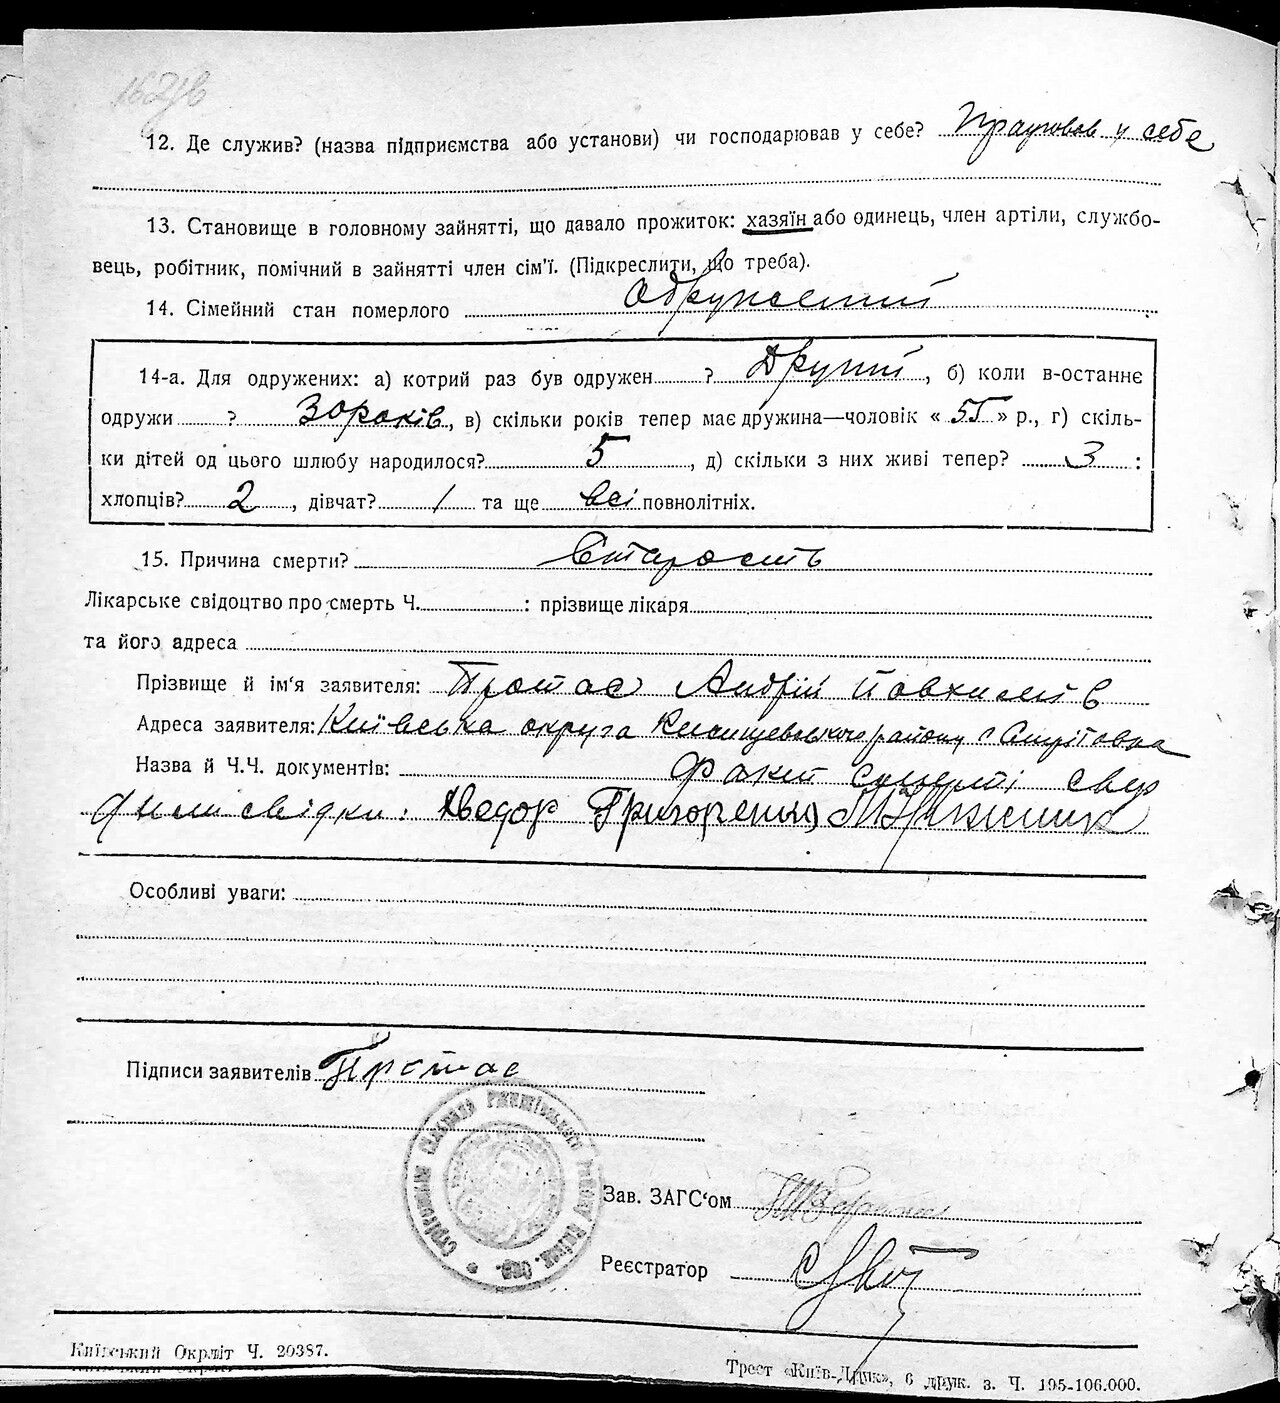 162зв
12. Де служив? (назва підприємства або установи) чи господарював у себе? Працював у себе
13. Становище в головному зайнятті, що давало прожиток: хазяїн або одинець, член артіли, службо-
вець, робітник, помічний в зайнятті член сім'ї. (Підкреслити, що треба).
14. Сімейний стан померлого Одружений
14-а. Для одружених: а) котрий раз був одружен ? Другий, б) коли в-останнє
одружи ? 30 років, в) скільки років тепер має дружина—чоловік « 55 » р., г) скіль-
ки дітей од цього шлюбу народилося? 5, д) скільки з них живі тепер? 3 :
хлопців? 2, дівчат? 1 та ще всі повнолітніх.
15. Причина смерти? Старость
Лікарське свідоцтво про смерть Ч. : прізвище лікаря
та його адреса
Прізвище й ім'я заявителя: Протас Андрій
Адреса заявителя: Київська округа району с
Назва й Ч.Ч. документів: Факт смерті свер
дили свідки: Хведор Григоренко
Особливі уваги:
Підписи заявителів Протас
Зав. ЗАГС'ом
Реєстратор
Київський Окрліт Ч. 20387.
Трест «Київ-Друк», 6 друк. з. Ч. 195-106.000.